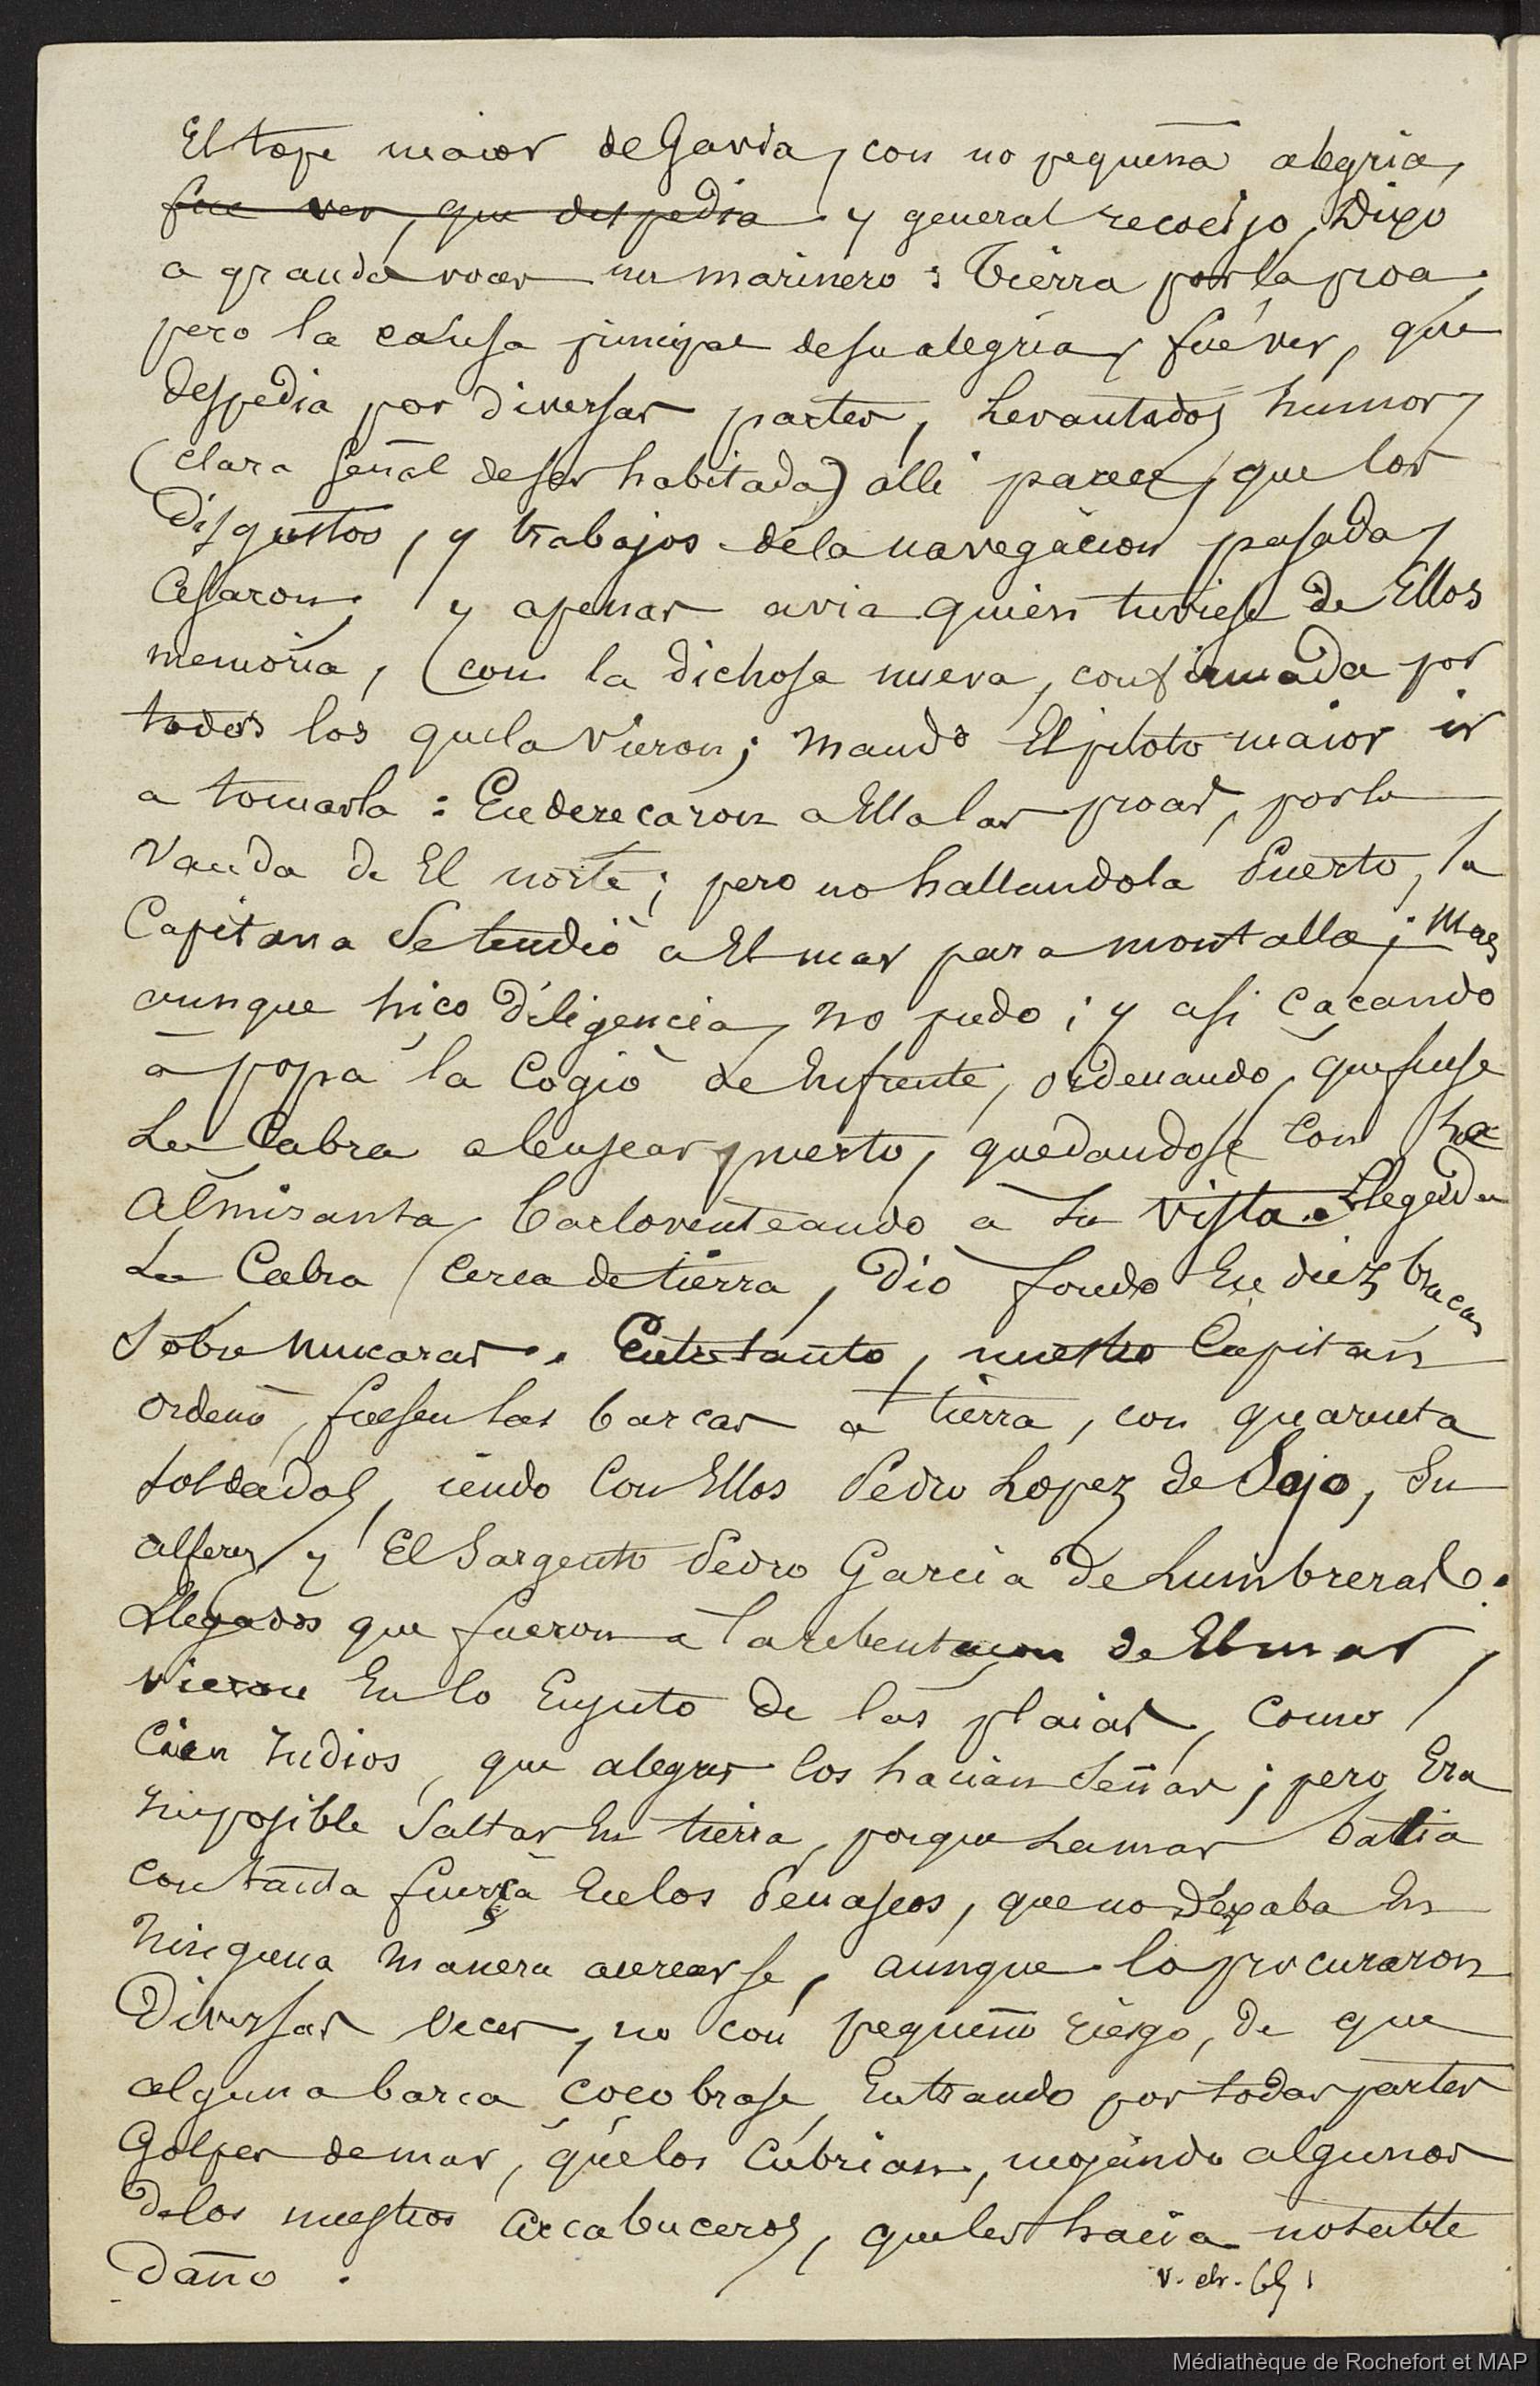 El tope maior de Gavia, con no pequeña alegria,
fue ver, que despedia y general recocijo, Dixo
a grandes voces un marinero : Tierra por la proa,
pero la causa principal de su alegria, fue ver, que
despedia por diversas partes, Levantados humos,
(clara señal de ser habitada) alli parece, que los
Disgustos, y trabajos de la navegacion pasada,
Cesaron; y apenas avia quien tuviese de Ellos
memoria, (con la dichosa nueva, confirmada por
todos los que la vieron; mandò El piloto maior ir
a tomarla : Enderecaron a Ella las proas, por la
Vanda de El norte; pero no hallandola Puerto, la
Capitana Se tendiò a El mar para montalla; Mas
aunque hiço Diligencia, no pudo ; y asi caçando
à popa la Cogiò de Enfrente, ordenando, que fuese
La Cabra a buscar puerto, quedandose con La
Almiranta, barloventeando a su vista. Llegada
La Cabra cerca de tierra, Dio fondo En diez braças
Sobre Mucaras. Entretanto, nuestro Capitan
ordenò, fuesen las barcas a tierra, con quarenta
soldados, iendo Con Ellos Pedro Lopez de Sojo, Su
alferez, y El Sargento Pedro Garcia de Lumbreras.
Llegados que fueron a la rebentaçon de El mar,
vieron En lo Enjuto de las plaias, como
Cien Indios, que alegres los hacian Señas ; pero Era
Imposible Saltar En tierra, porque La mar batia
con tanta fuerça En los Penascos, que no Dexaba En
Ninguna Manera acercarse, aunque lo procuraron
Diversas veces, no con pequeño riesgo, de que
alguna barca çoçobrase, Entrando por todas partes
Golpes de mar, que los Cubrian, mojando algunos
De los nuestros Arcabuceros, que les hacia notable
Daño.